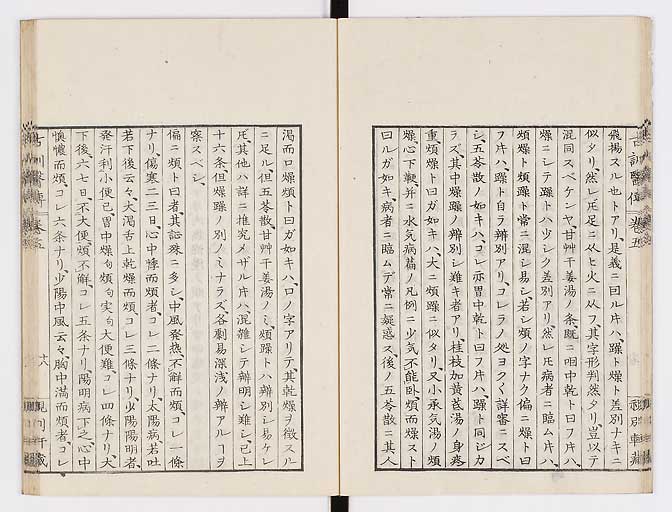 飛揚スル也トアリ、是義ニ因ル片ハ、躁ト燥ト差別ナキニ
似タリ、然レ𪜈足ニ从ヒ火ニ从フ、其字形判然タリ、豈以テ
混同スベケンヤ、甘艸干姜湯ノ条、既ニ咽中乾トヨフ片ハ、
燥ニシテ躁トハ少シク差別アリ、然レ𪜈病者ニ臨ム片ハ、
煩燥ト煩躁ト常ニ混シ易シ、若シ煩ノ字ナク偏ニ燥ト曰
フ片ハ、躁ト自ラ辨別アリ、コレラノ処ヨク〻詳審ニスベ
シ、五苓散ノ如キハ、コレ亦胃中乾ト曰フ片ハ、躁ト同ジカ
ラズ、其中燥躁ノ辨別シ難キ者アリ、桂枝加黄芪湯ノ身疼
重煩躁ト曰ガ如キハ、大ニ煩躁ニ似タリ、又小承気湯ノ煩
燥心下鞕、并ニ水気病篇ノ凡例ニ、少気不能卧煩而燥スト
曰ルガ如キ、病者ニ臨ムデ常ニ疑惑ス、後ノ五苓散ニ其人
渇而口燥煩ト曰ガ如キハ、口ノ字アリテ、其乾燥ヲ徴スル
ニ足ル、但五苓散甘艸干姜湯ノミ、煩躁ト ハ辨別シ易ケレ
𪜈、其他ハ詳ニ推究メザル片ハ混雑シテ辨明シ難シ、已上
十六条、但燥躁ノ別ノミナラズ、各劇易深浅ノ辨アルヿヲ
察スベシ、
偏ニ煩ト曰者、其証殊ニ多シ、中風発熱、不解而煩、コレ一條
ナリ、傷寒二三日、心中悸而煩者、コレ二條ナリ、太陽病、若吐
若下後云々、大渇舌上乾燥而煩、コレ三條ナリ、少陽陽明者、
発汗利小便已、胃中燥句煩句実句大便難、コレ四條ナリ、大
下後、六七日、不大便、煩不解、コレ五条ナリ、陽明病下之、心中
懊憹而煩、コレ六条ナリ、少陽中風云々、胸中満而煩者、コレ